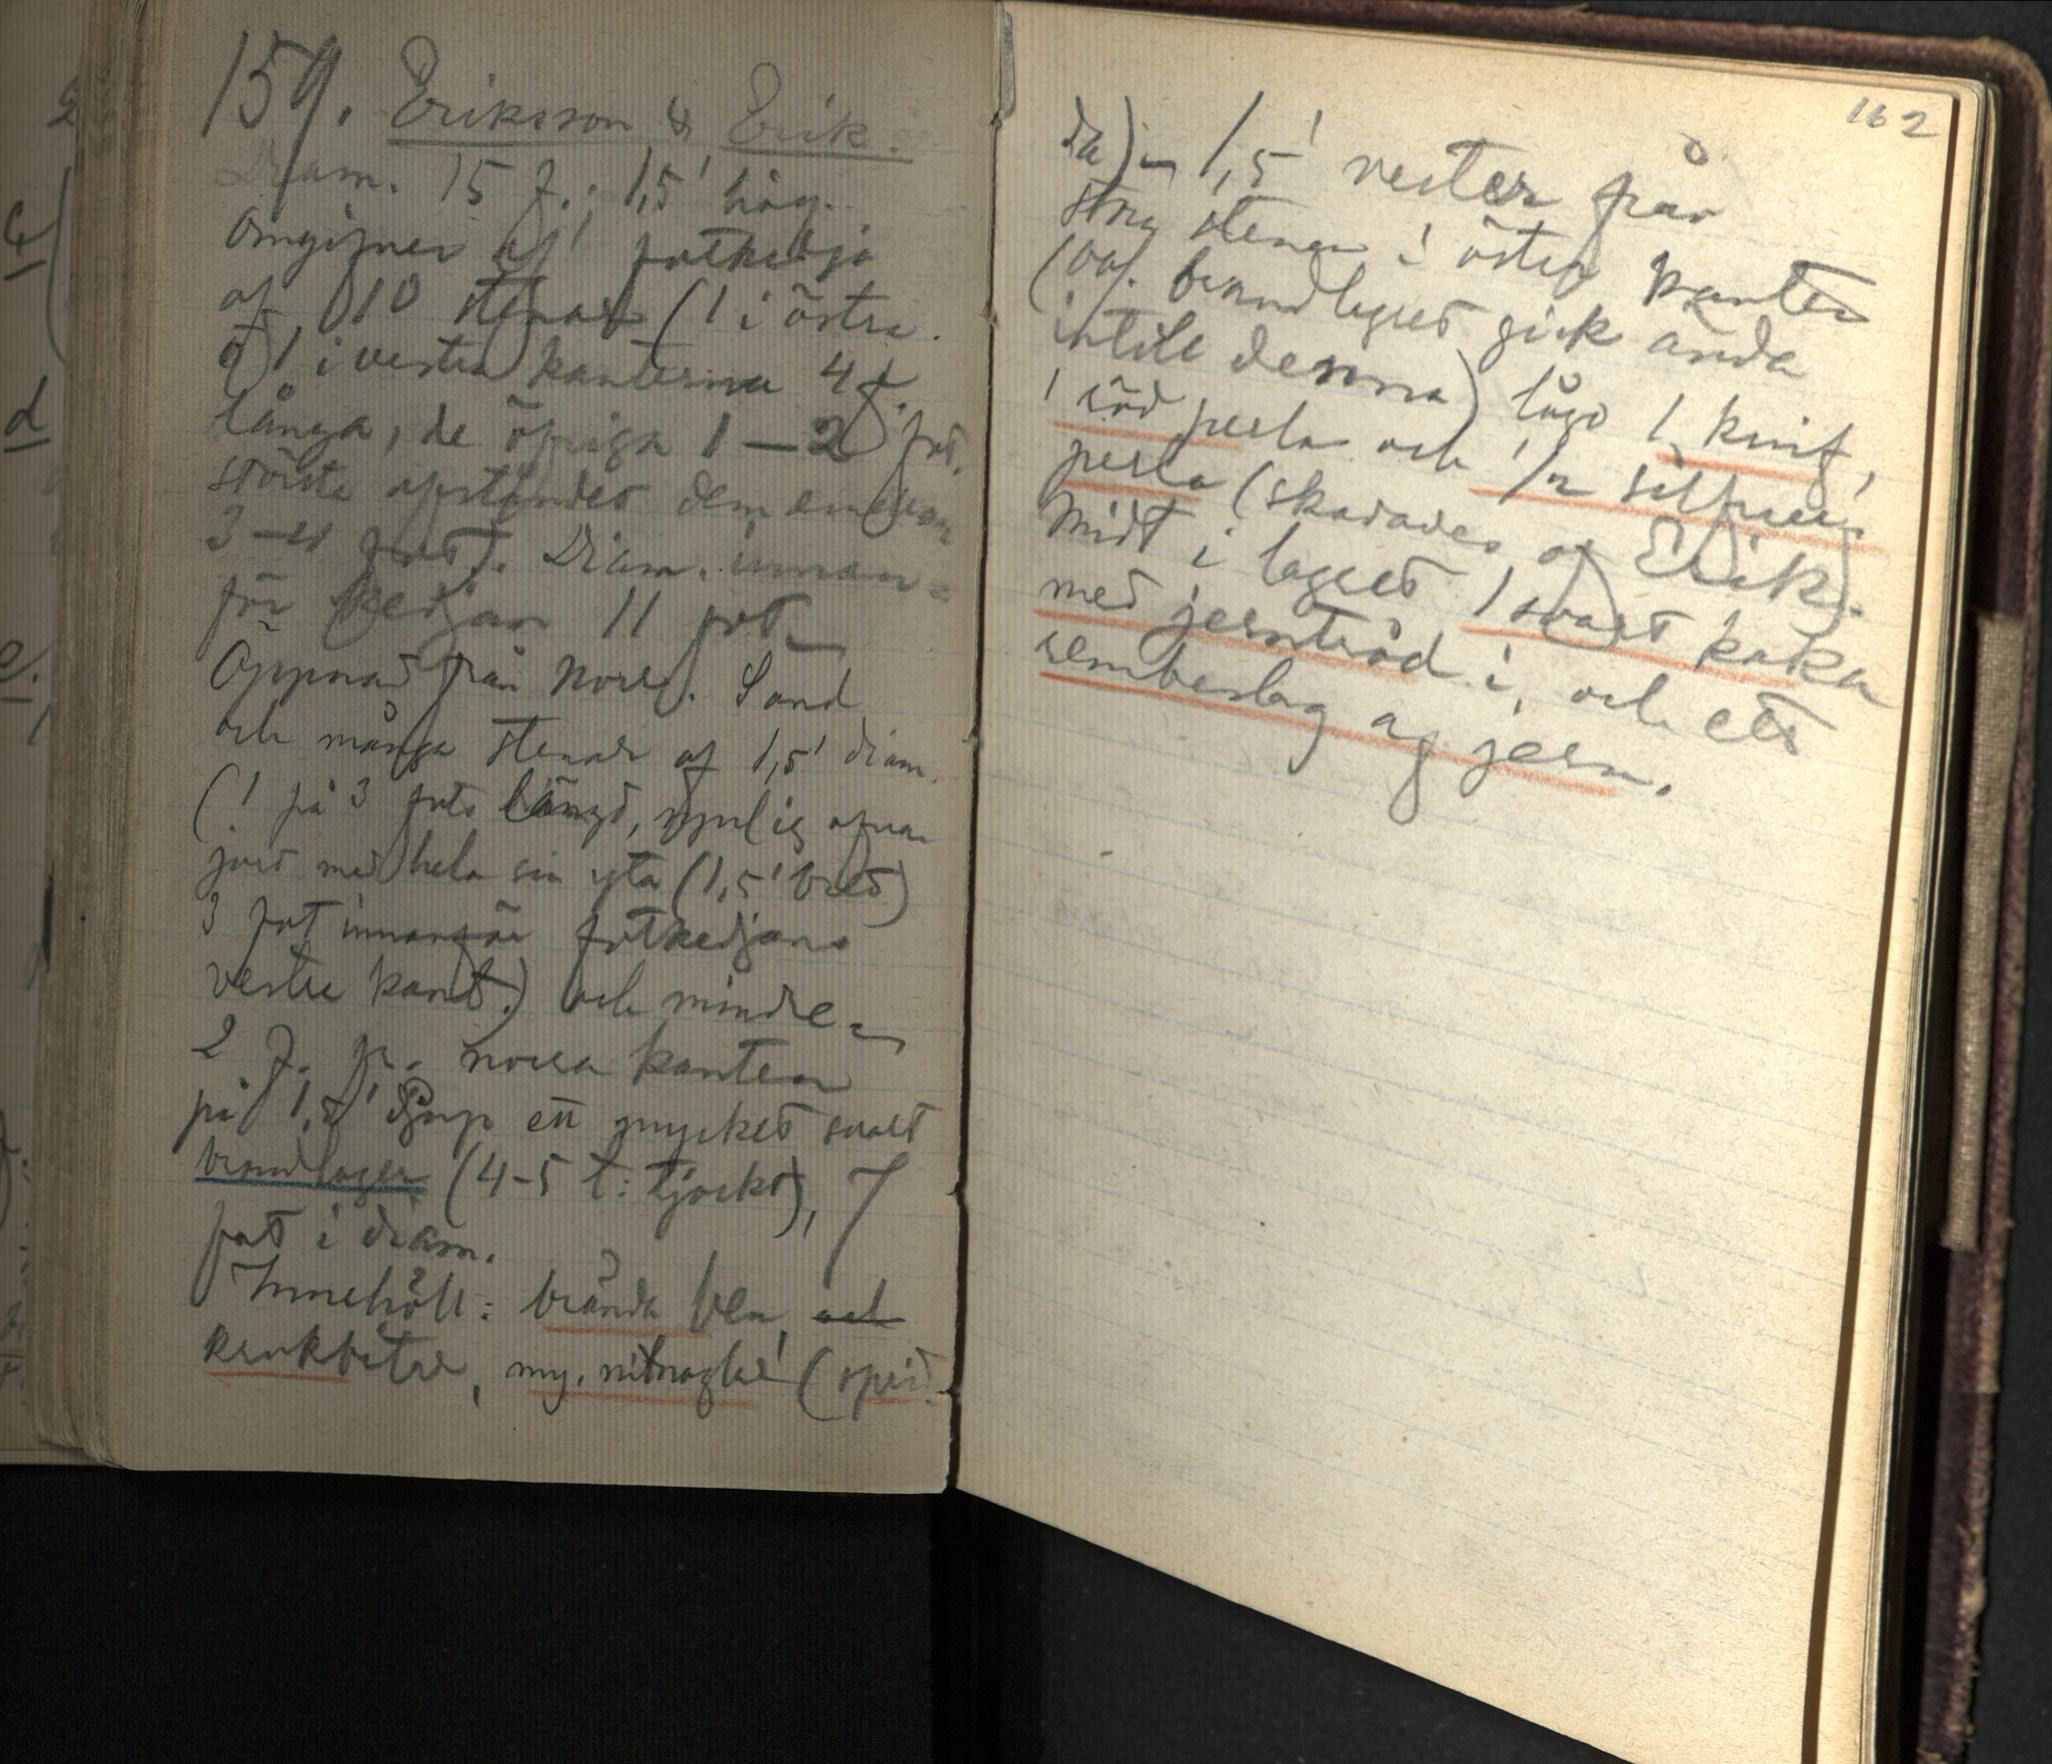 159. Eriksson & Erik.
Diam. 15 f.; 1,5' hög.
Omgifven af fotkedja
af 10 stenar (1 i östra
o 1 i vestra kanterna 4 f.
långa, de öfriga 1–2 fot,
största afståndet dem emellan
3–4 fot). Diam. innan-
för kedjan 11 fot.
Öppnad från norr. Sand
och många stenar af 1,5' diam.
(1 på 3 fots längd, synlig ofvan
jord med hela sin yta (1,5' bred)
3 fot innanför fotkedjans
vestra kant.) och mindre.
2 f. fr. norra kanten
på 1,5' djup ett mycket svart
brandlager (4-5 t: tjockt), 7
fot i diam.
Innehöll: brända ben, och
krukbitar, my. nitnaglar (spri-
162
da) – 1,5' vester från
stora stenen i östra kanten
(och brandlagret gick ända
intill denna) lågo 1 knif,
1 röd perla och 1/2 silfver-
perla (skadades af Erik).
Midt i lagret 1 svart kaka
med jerntråd i, och ett
rembeslag af jern.